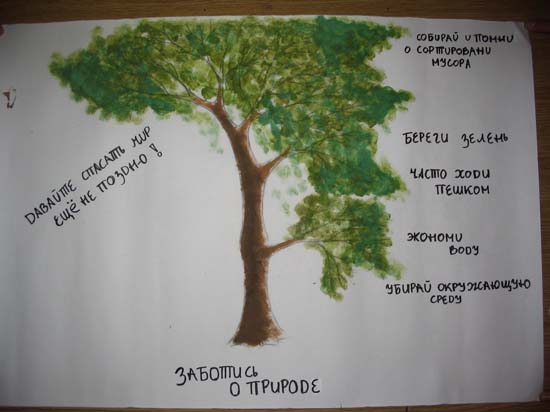 СОБИРАЙ И ПОМНИ
О СОРТИРОВАНИ
МУСОРА
БЕРЕГИ ЗЕЛЕНЬ
ЧАСТО ХОДИ
ПЕШКОМ
ЭКОНОМИ
ВОДУ
УБИРАЙ ОКРУЖАЮЩУЮ
СРЕДУ
ДАВАЙТЕ СПАСАТЬ МИР
ЕЩЁ НЕ ПОЗДНО!
ЗАБОТИСЬ
О ПРИРОДЕ